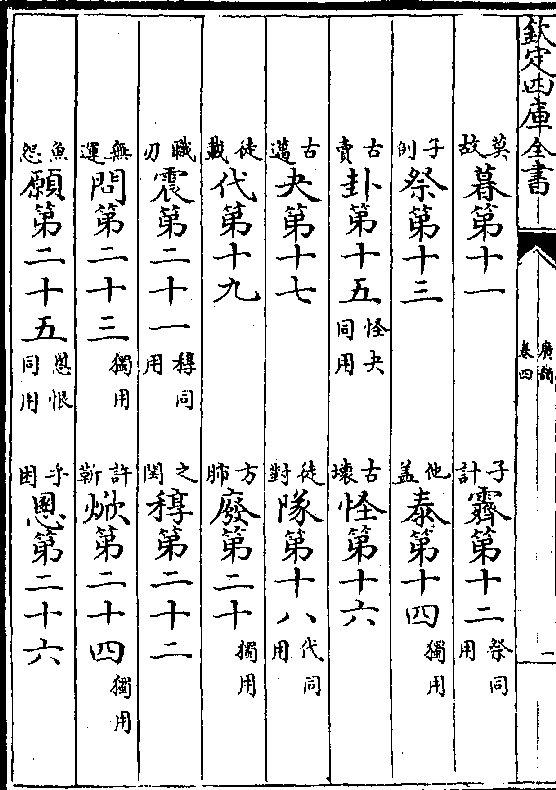 欽定四庫全書
廣韻
卷四
二
莫故暮第十一
子計霽第十二祭同用
子例祭第十三
他盖泰第十四獨用
古賣卦第十五怪夬同用
古壞怪第十六
古邁夬第十七
徒對隊第十八代同用
徒戴代第十九
方肺廢第二十獨用
職刃震第二十一稕同用
之閏稕第二十二
無運問第二十三獨用
許靳焮第二十四獨用
魚怨願第二十五慁恨同用
乎困慁第二十六